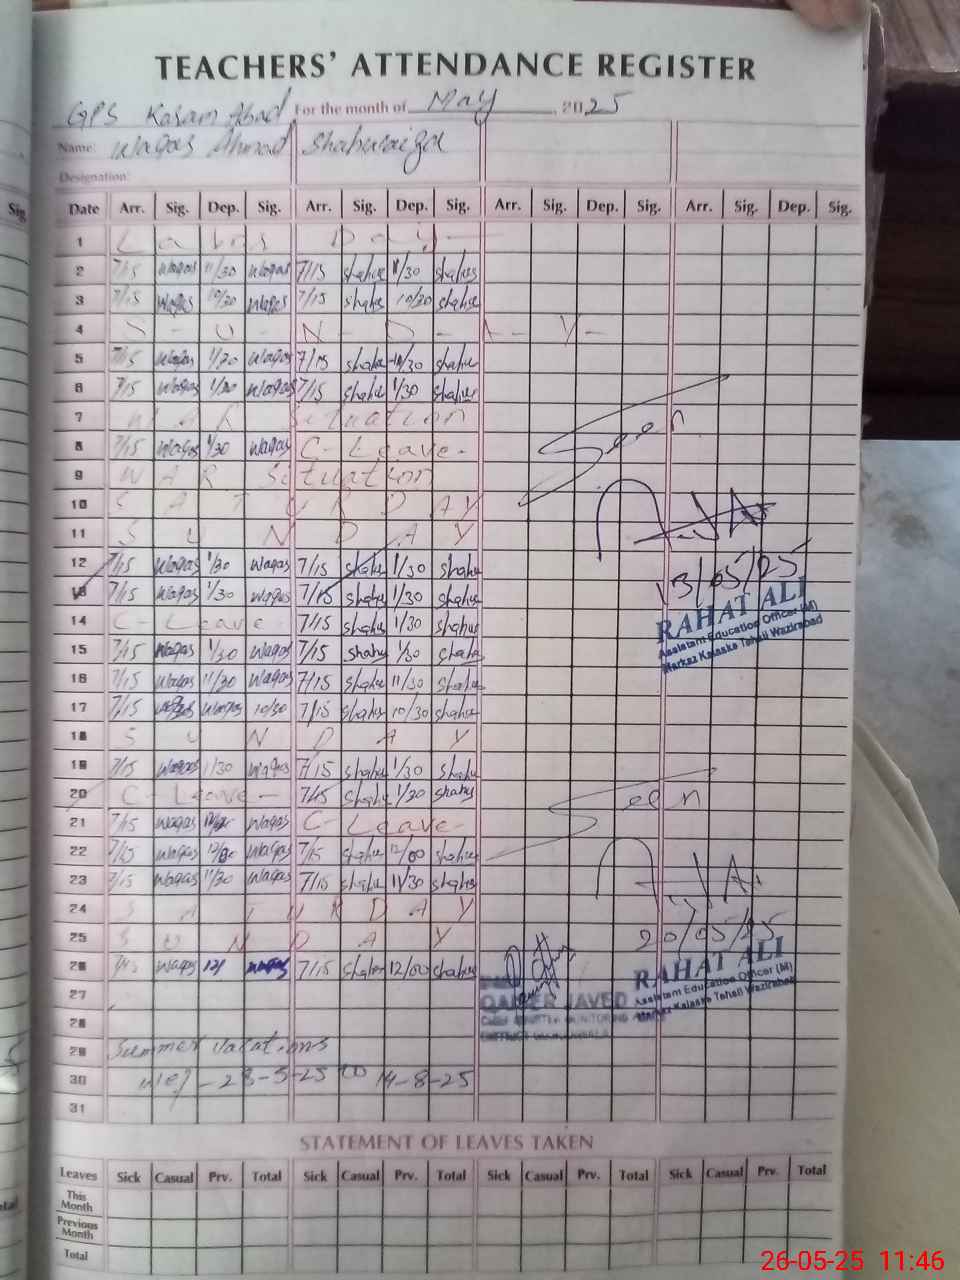 TEACHERS' ATTENDANCE REGISTER
GPS Kasam Abad For the month of May, 2025
Name: Waqas Ahmad Shahwaiza
Designation:
Date Arr. Sig. Dep. Sig. Arr. Sig. Dep. Sig. Arr. Sig. Dep. Sig. Arr. Sig. Dep. Sig.
1 Labor Day
2 7/15 Waqas 11/30 Waqas 7/15 shahw 11/30 shahw
3 7/15 Waqas 10/30 Waqas 7/15 shahw 10/30 shahw
4 S-U-N-D-A-Y-
5 7/15 Waqas 1/30 Waqas 7/15 shahw 1/30 shahw
6 7/15 Waqas 1/30 Waqas 7/15 shahw 1/30 shahw
7 WAR Situation
8 7/15 Waqas 1/30 Waqas C-Leave-
Seen
9 WAR Situation
10 SATURDAY
11 SUNDAY
12 7/15 Waqas 1/30 Waqas 7/15 shahw 1/30 shahw
13 7/15 Waqas 1/30 Waqas 7/15 shahw 1/30 shahw
13/05/25
RAHAT ALI
Assistant Education Officer (M)
Markaz Kalaske Tehsil Wazirabad
14 C-Leave 7/15 shahw 1/30 shahw
15 7/15 Waqas 1/30 Waqas 7/15 shahw 1/30 shahw
16 7/15 Waqas 11/30 Waqas 7/15 shahw 11/30 shahw
17 7/15 Waqas Waqas 10/30 7/15 shahw 10/30 shahw
18 SUNDAY
19 7/15 Waqas 1/30 Waqas 7/15 shahw 1/30 shahw
20 C-Leave- 7/15 shahw 1/30 shahw
Seen
21 7/15 Waqas Waqas C-Leave-
22 7/15 Waqas 12/00 Waqas 7/15 shahw 12/00 shahw
23 7/15 Waqas 11/30 Waqas 7/15 shahw 11/30 shahw
24 SATURDAY
25 SUNDAY
20/05/25
RAHAT ALI
Assistant Education Officer (M)
Markaz Kalaske Tehsil Wazirabad
26 7/15 Waqas 12/ Waqas 7/15 shahw 12/00 shahw
QAISER JAVED
27
28
29 Summer vacations
30 wef - 28-5-25 to 14-8-25
31
STATEMENT OF LEAVES TAKEN
Leaves Sick Casual Prv. Total Sick Casual Prv. Total Sick Casual Prv. Total Sick Casual Prv. Total
This Month
Previous Month
Total
26-05-25 11:46